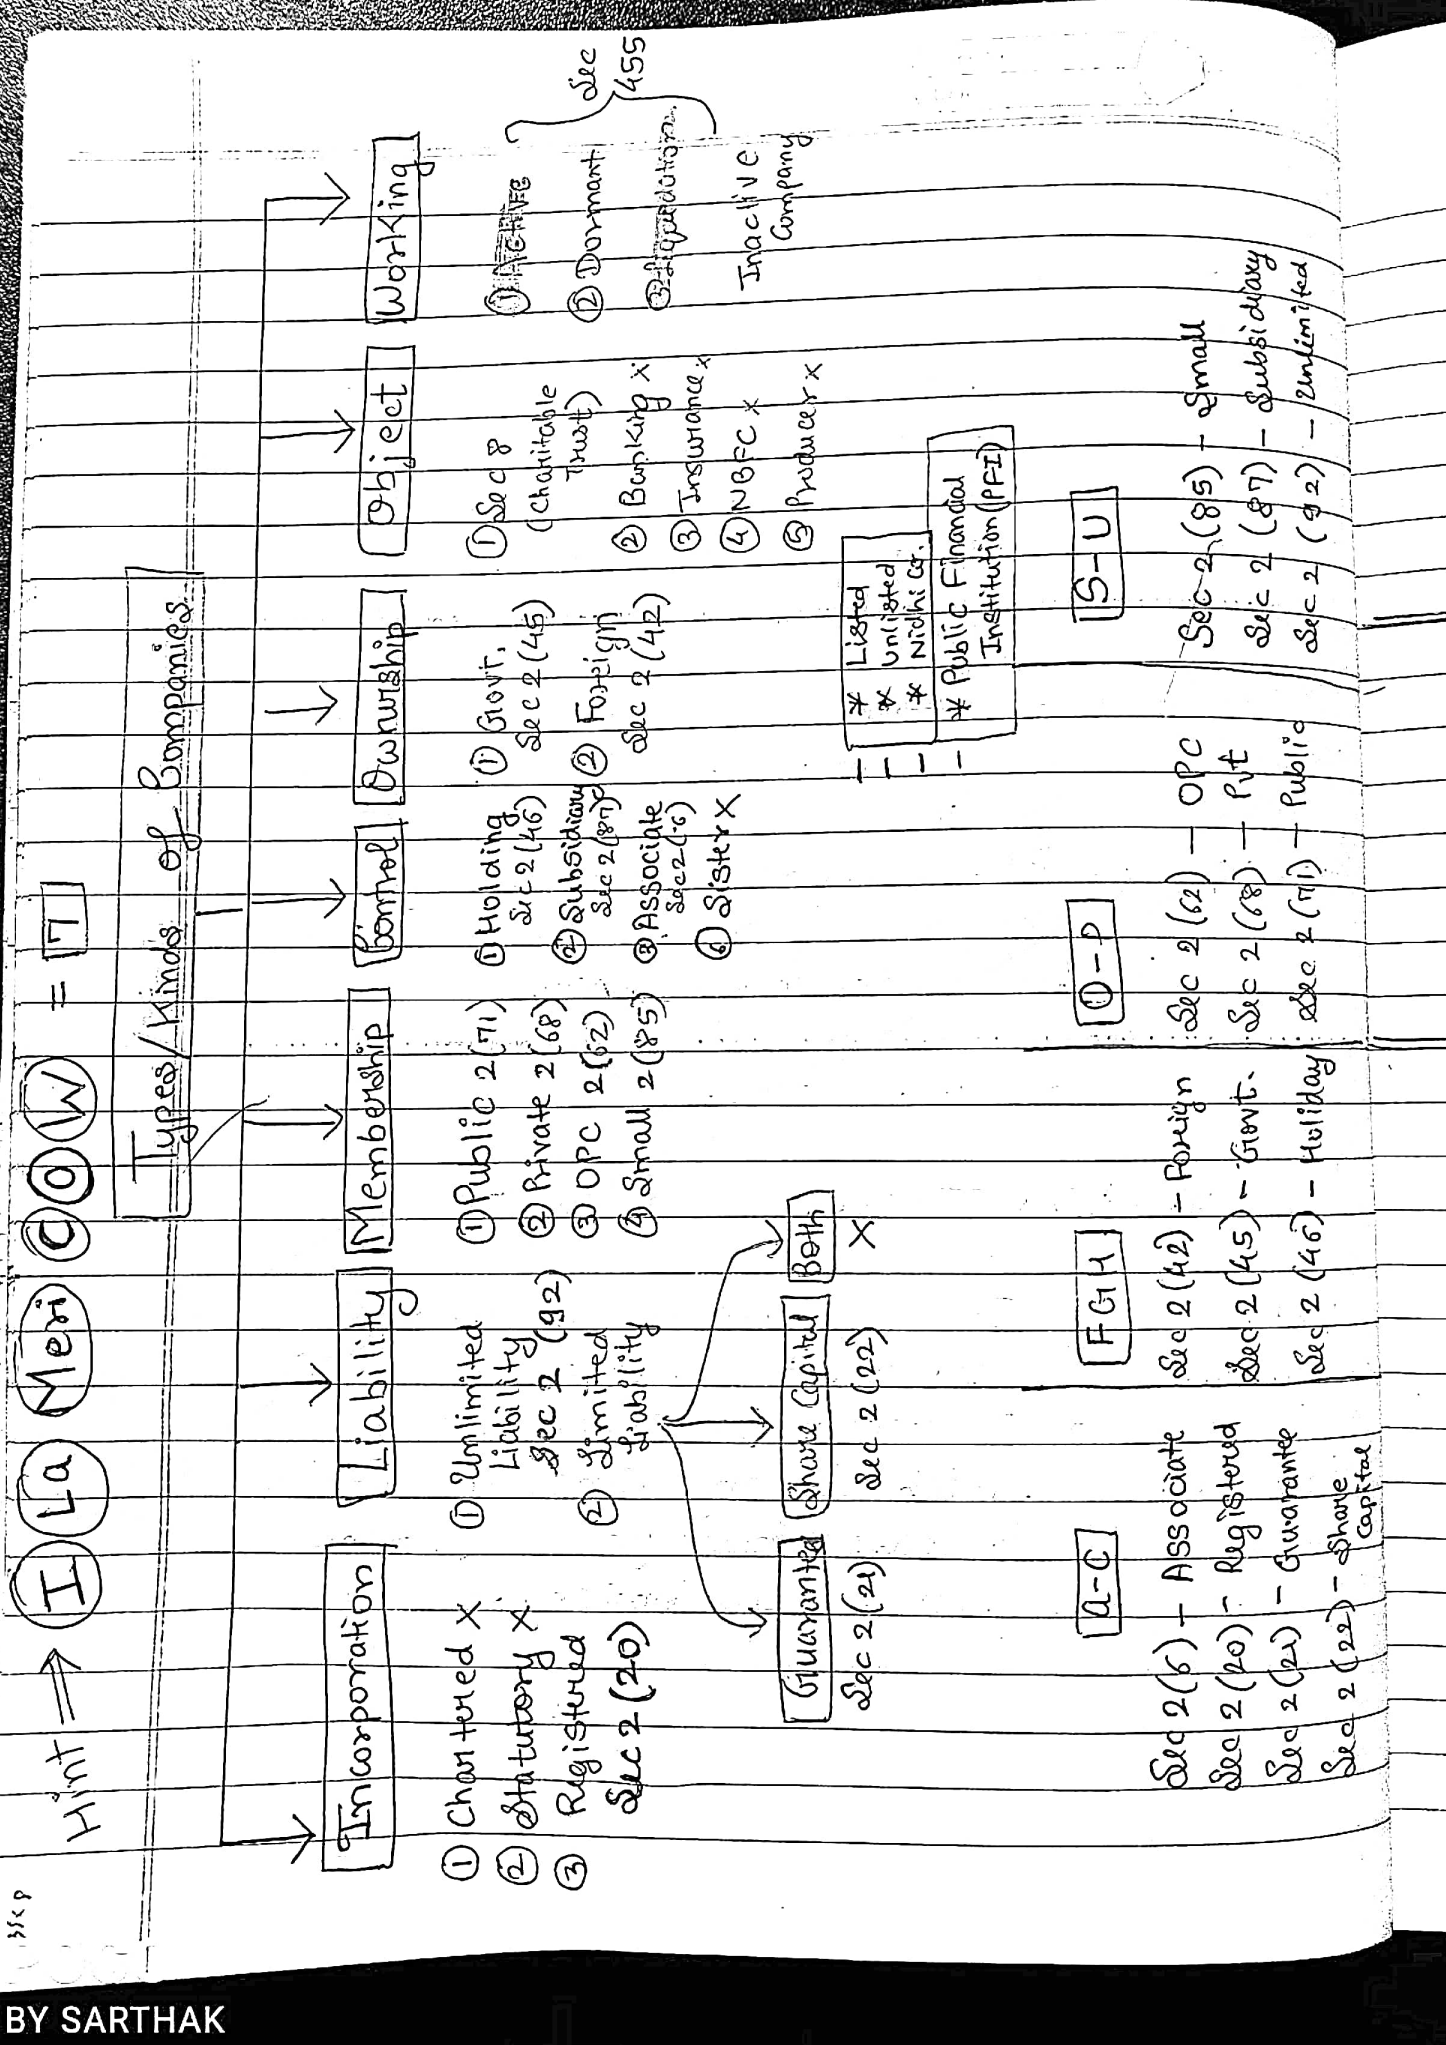 Hint ⇒ I La Meri C O W = 7
Types/Kinds of Companies
Incorporation
① Chartered X
② Statutory X
③ Registered
Sec 2 (20)
Liability
① Unlimited
Liability
Sec 2 (92)
② Limited
Liability
Guarantee
Sec 2 (21)
Share Capital
Sec 2 (22)
Both
X
Membership
① Public 2(71)
② Private 2(68)
③ OPC 2(62)
④ Small 2(85)
Control
① Holding
Sec 2 (46)
② Subsidiary
Sec 2 (87)
③ Associate
Sec 2 (6)
⑥ Sister X
Ownership
① Govt.
Sec 2 (45)
② Foreign
Sec 2 (42)
Object
① Sec 8
(Charitable
Trust)
② Banking X
③ Insurance X
④ NBFC X
⑤ Producer X
Working
① Active
② Dormant
③ Liquidation
Inactive
Company
Sec
455
— * Listed
— * Unlisted
— * Nidhi Co.
— * Public Financial
Institution (PFI)
A-C
Sec 2 (6) - Associate
Sec 2 (20) - Registered
Sec 2 (21) - Guarantee
Sec 2 (22) - Share
Capital
FGH
Sec 2 (42) - Foreign
Sec 2 (45) - Govt.
Sec 2 (46) - Holiday
O-P
Sec 2 (62) - OPC
Sec 2 (68) - Pvt
Sec 2 (71) - Public
S-U
Sec 2 (85) - Small
Sec 2 (87) - Subsidiary
Sec 2 (92) - Unlimited
BY SARTHAK